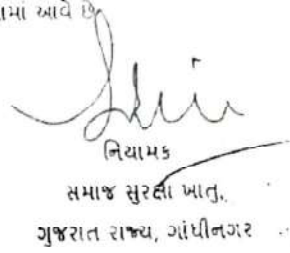 આવે છે
નિયામક
સમાજ સુરક્ષા ખાતુ,
ગુજરાત રાજ્ય, ગાંધીનગર